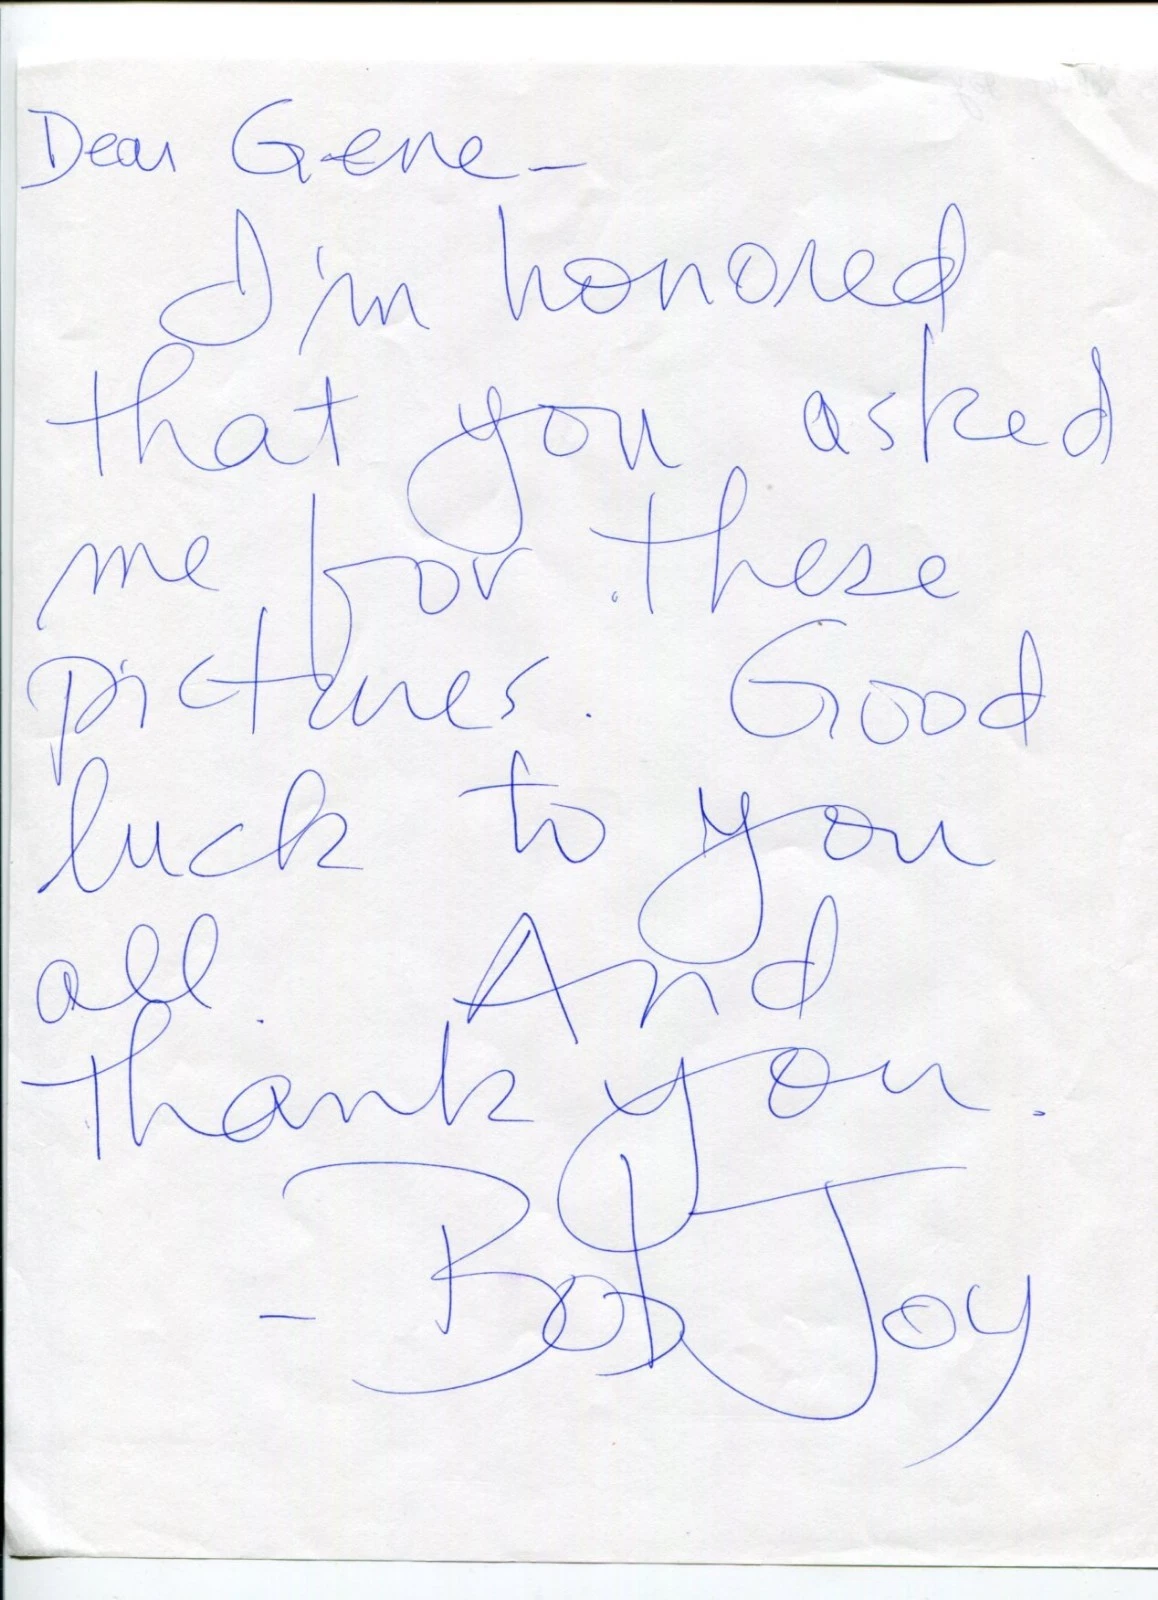 Dear Gene -
I'm honored
that you asked
me for these
pictures. Good
luck to you
all. And
thank you.
- Bob Joy